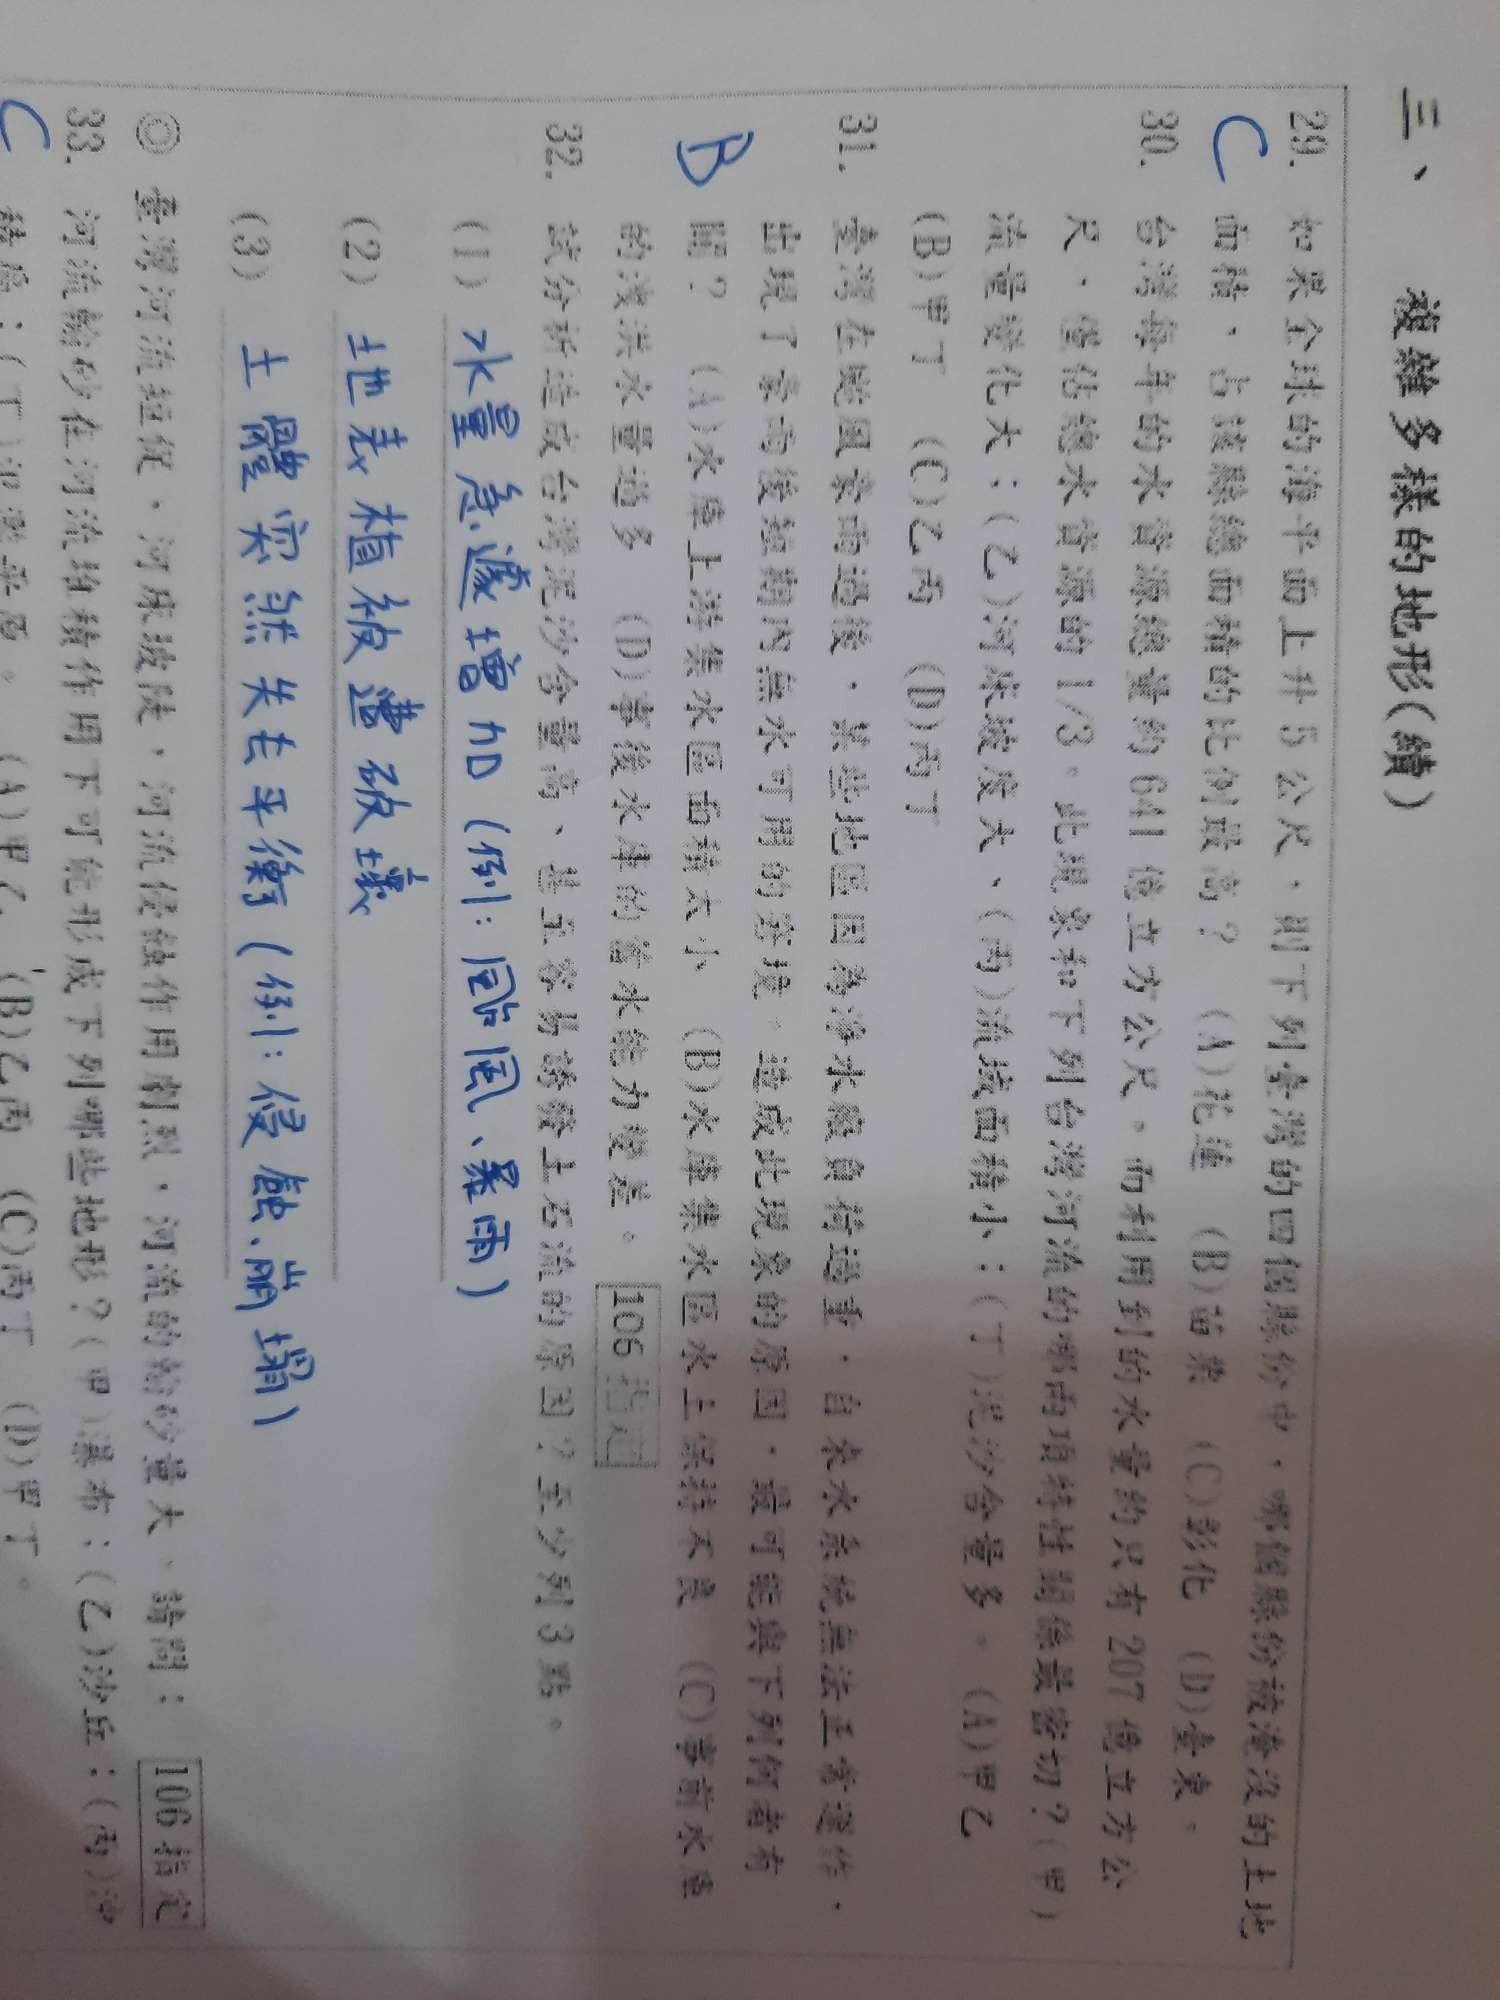 三、 複雜多樣的地形(續)
29. 如果全球的海平面上升 5 公尺,則下列臺灣的四個縣份中,哪個縣份被淹沒的土地
C 面積,占該縣總面積的比例最高? (A)花蓮 (B)苗栗 (C)彰化 (D)臺東。
30. 台灣每年的水資源總量約 641 億立方公尺,而利用到的水量約只有 207 億立方公
尺,僅佔總水資源的 1/3。此現象和下列台灣河流的哪兩項特性關係最密切?(甲)
流量變化大;(乙)河床坡度大、(丙)流域面積小;(丁)泥沙含量多。 (A)甲乙
(B)甲丁 (C)乙丙 (D)丙丁
31. 臺灣在颱風豪雨過後,某些地區因為淨水廠負荷過重,自來水系統無法正常運作,
出現了豪雨後短期內無水可用的窘境。造成此現象的原因,最可能與下列何者有
B 關? (A)水庫上游集水區面積太小 (B)水庫集水區水土保持不良 (C)事前水庫
的洩洪水量過多 (D)事後水庫的蓄水能力變差。 106 指定
32. 試分析造成台灣泥沙含量高、甚至容易誘發土石流的原因?至少列 3 點。
(1) 水量急遽增加(例:颱風、暴雨)
(2) 地表植被遭破壞
(3) 土體突然失去平衡(例:侵蝕、崩塌)
◎ 臺灣河流短促,河床坡陡,河流侵蝕作用劇烈,河流的輸沙量大。請問: 106 指定
33. 河流輸砂在河流堆積作用下可能形成下列哪些地形?(甲)瀑布;(乙)沙丘;(丙)沖
C (丁) (A)甲乙 (B)乙丙 (C)丙丁 (D)甲丁。